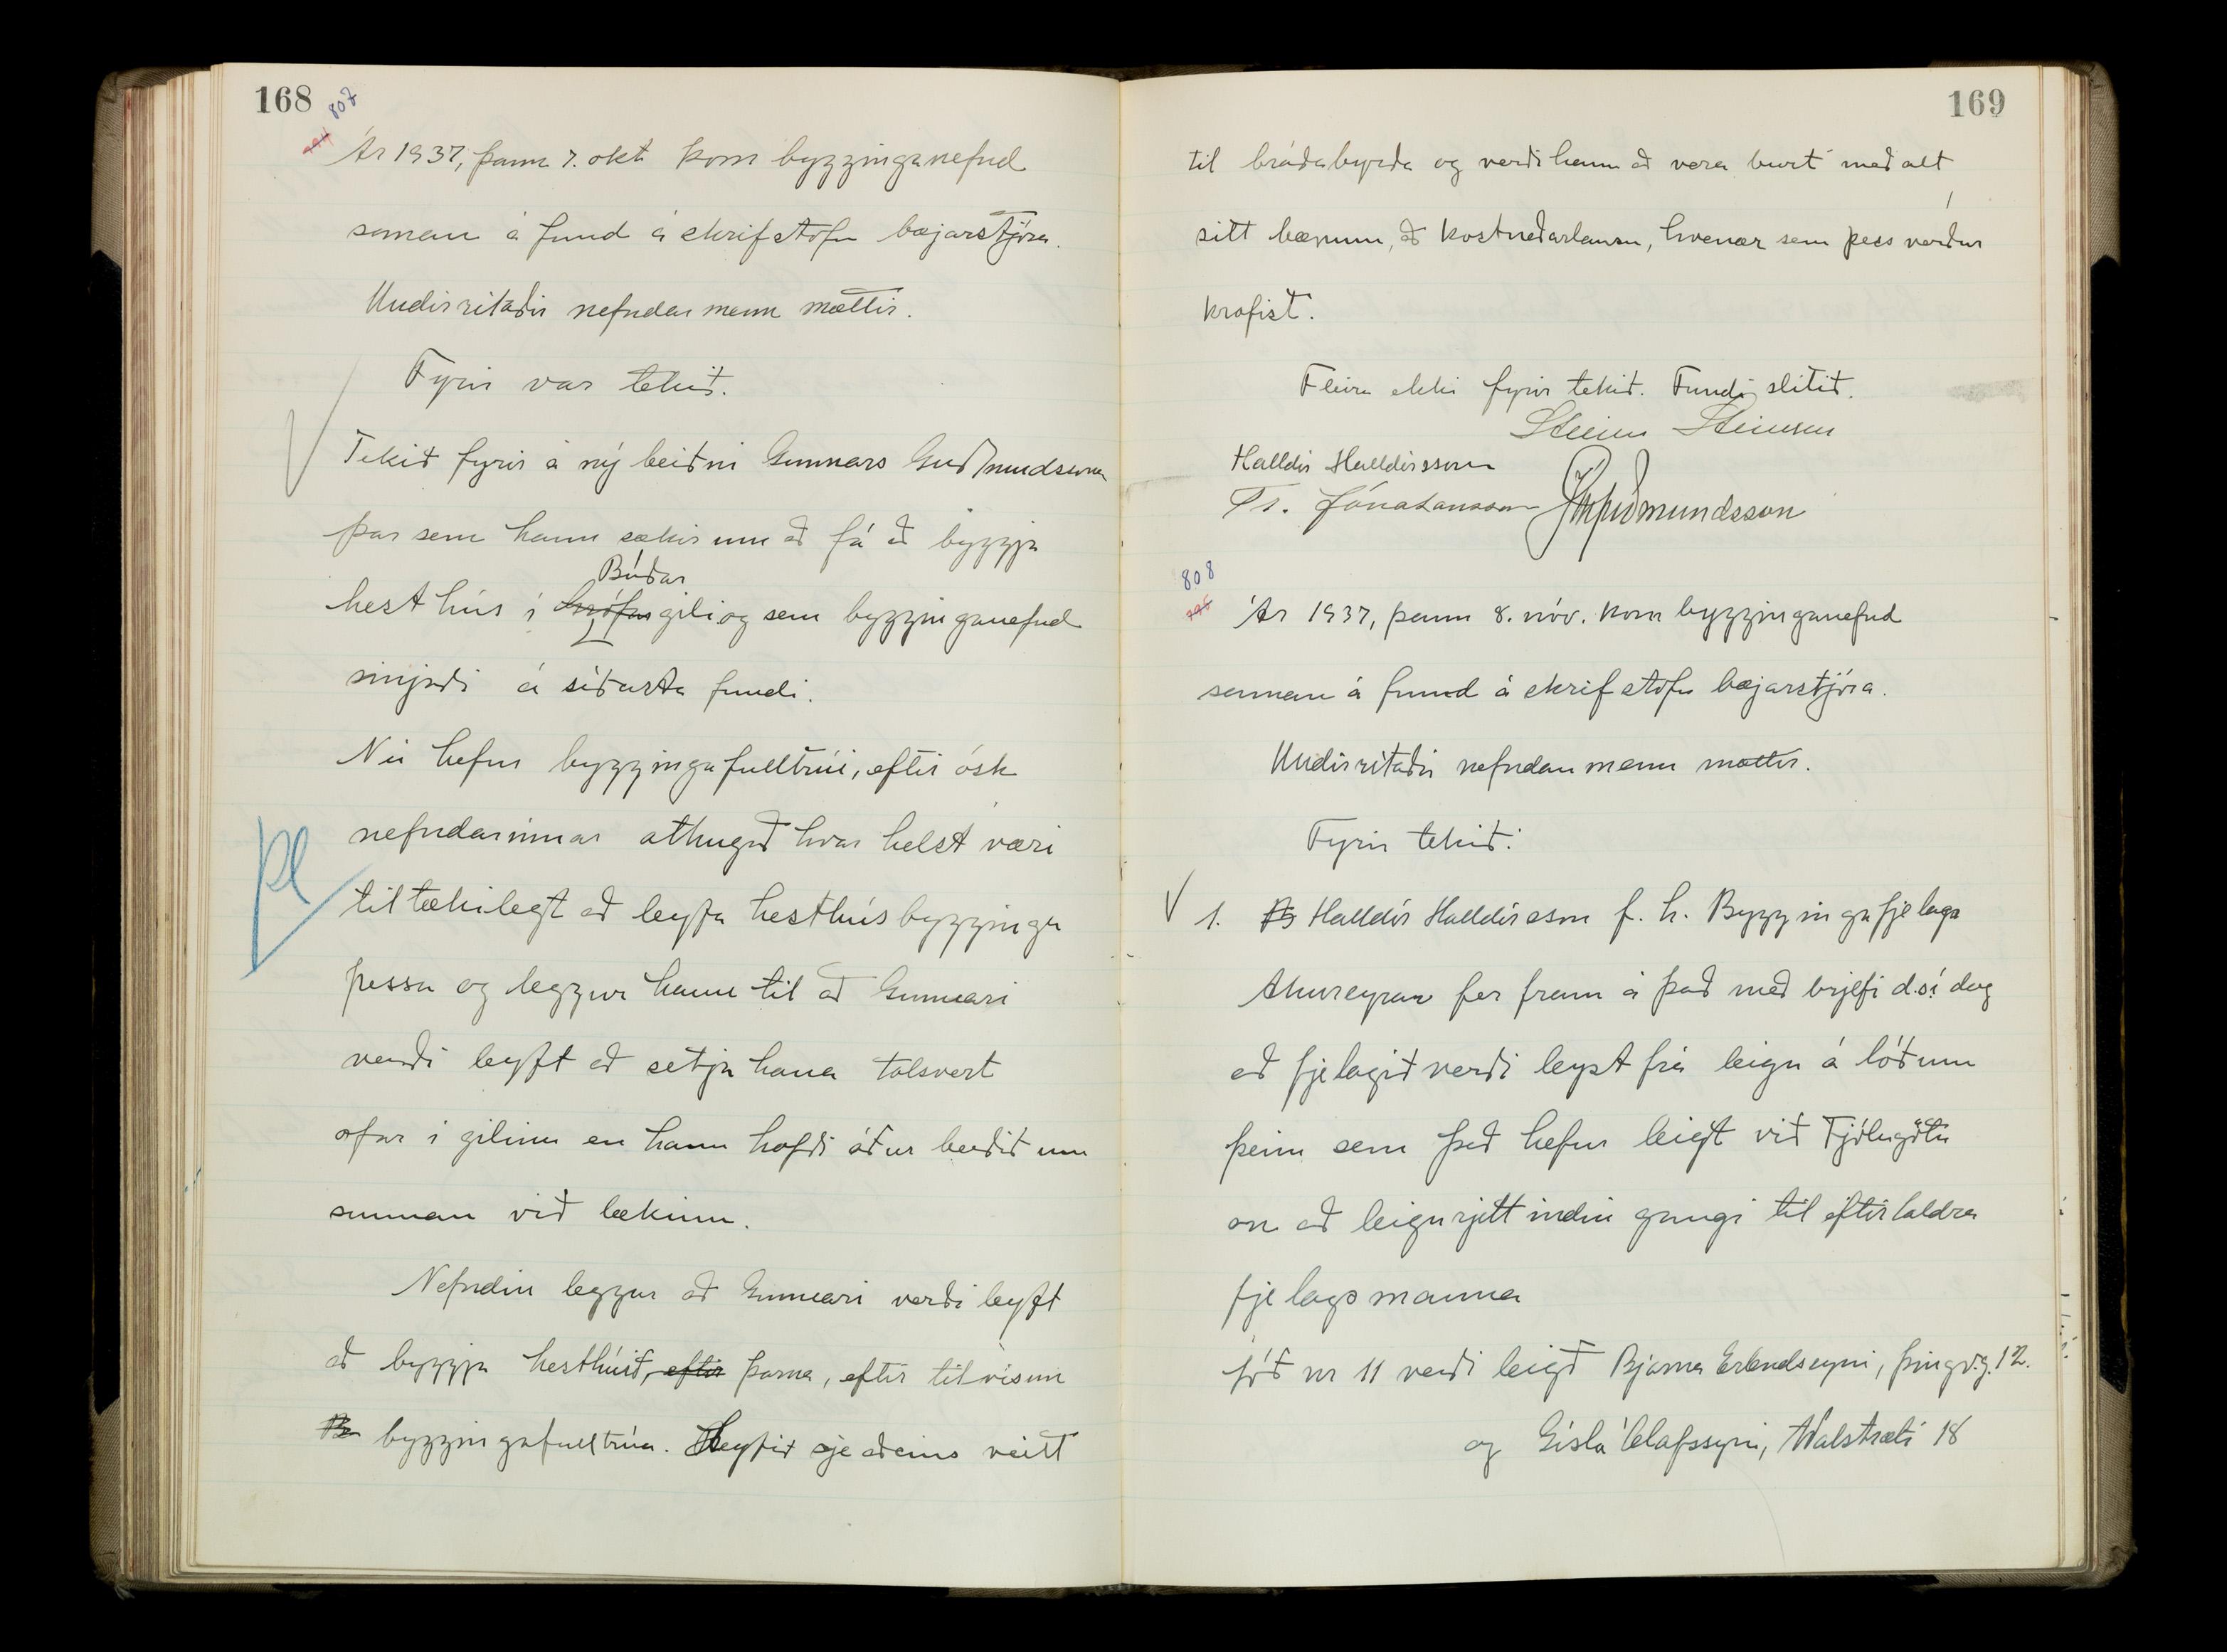 168
807
Ár 1937, þann 7. okt. kom bygginganefnd
saman á fund á skrifstofu bæjarstjóra.
Undirritaðir nefndarmenn mættir.
Fyrir var tekið.
Tekið fyrir á ný beiðni Gunnars Guðmundssonar
þar sem hann sækir um að fá að byggja
Búðar
hesthús í gili og sem bygginganefnd
synjaði á síðasta fundi.
Nú hefur byggingafulltrúi, eftir ósk
nefndarinnar athugað hvar helst væri
tiltækilegt að leyfa hesthúsbyggingu
pl
þessa og leggur hann til að Gunnari
verði leyft að setja hana talsvert
ofar í gilinu en hann hafði áður beðið um
sunnan við lækinn.
Nefndin leggur að Gunnari verði leyft
að byggja hesthúsið, eftir þarna, eftir tilvísun
byggingafulltrúa. Leyfið sje aðeins veitt
169
til bráðabyrgða og verði hann að vera burt með alt
sitt bænum, að kostnaðarlausu, hvenær sem þess verður
krafist.
Fleira ekki fyrir tekið. Fundi slitið.
Steinn Steinsen
Halldór Halldórsson
Tr. Jónatansson Guðmundsson
808
Ár 1937, þann 8. nóv. kom bygginganefnd
saman á fund á skrifstofu bæjarstjóra.
Undirritaðir nefndarmenn mættir.
Fyrir tekið:
1. Halldór Halldórsson f. h. Byggingafjelags
Akureyrar fer fram á það með brjefi d.s. í dag
að fjelagið verði leyst frá leigu á lóðum
þeim sem það hefur leigt við Fjólugötu
en að leigurjettindin gangi til eftirtaldra
fjelagsmanna
Lóð nr 11 verði leigð Bjarna Erlendssyni, Þingv.g. 12.
og Gísla Ólafssyni, Aðalstræti 18